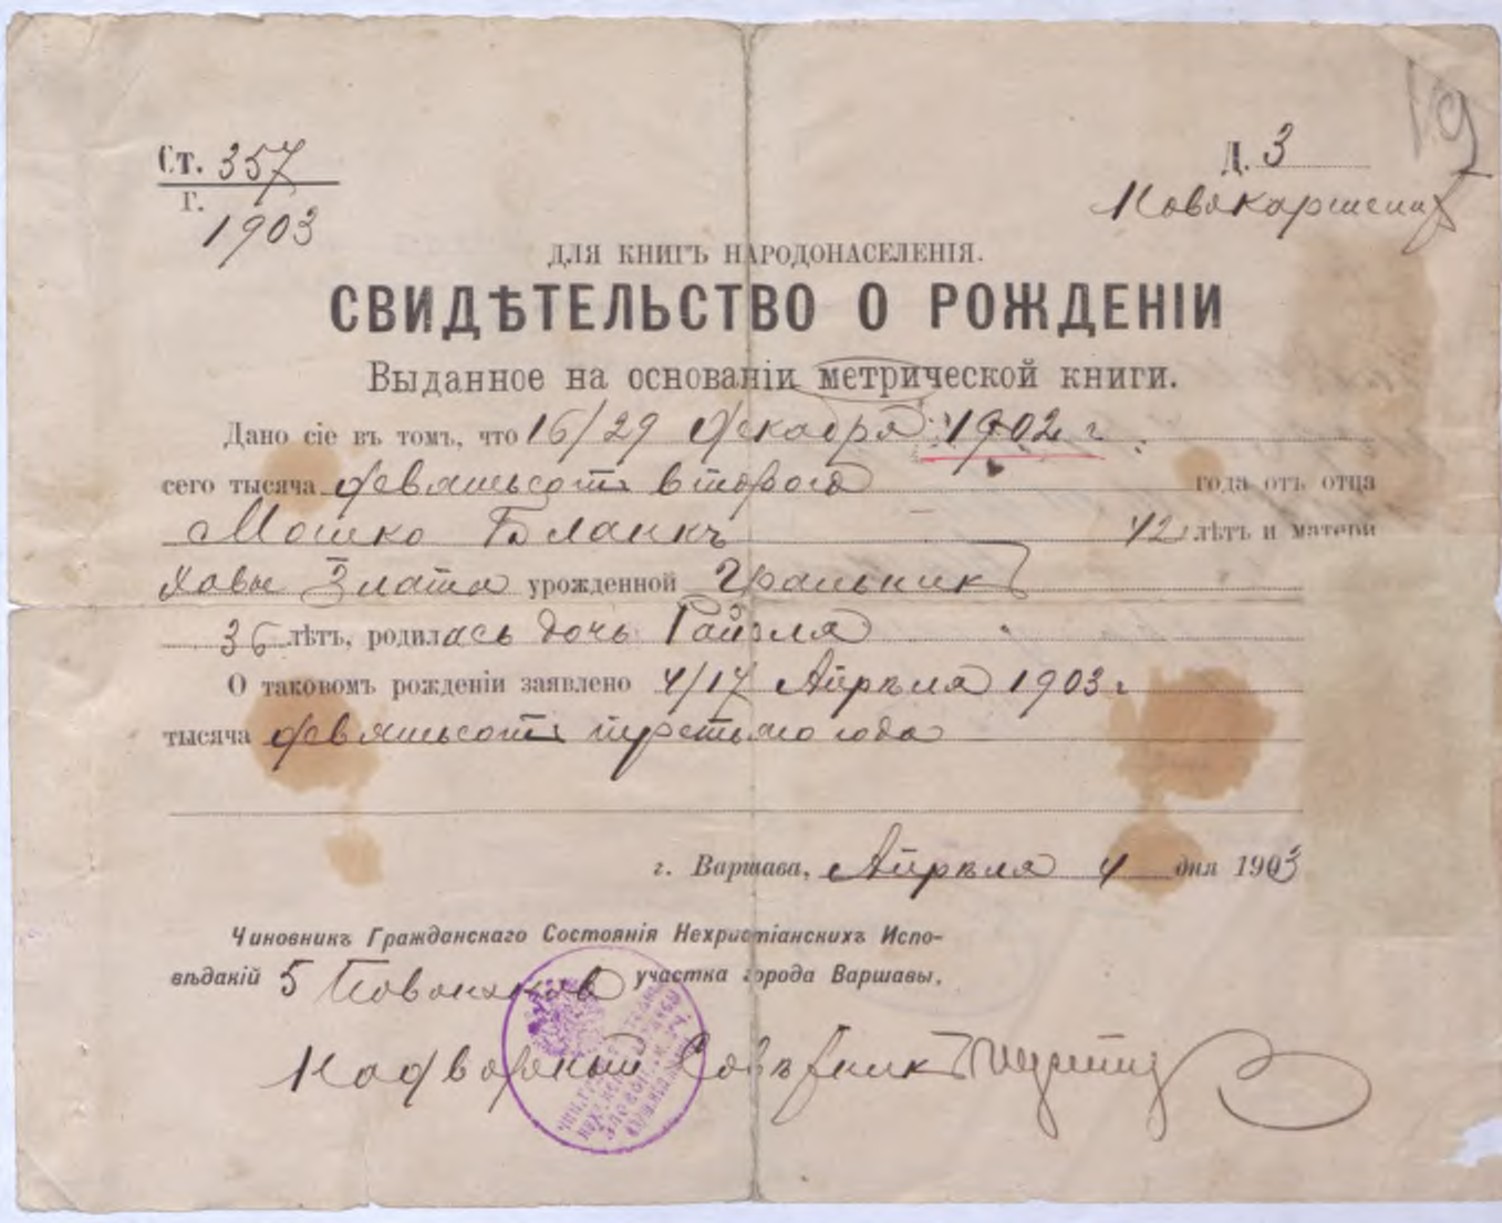 Ст. 357
Г. 1903
19
Д. 3
ДЛЯ КНИГЪ НАРОДОНАСЕЛЕНІЯ.
СВИДѢТЕЛЬСТВО О РОЖДЕНІИ
Выданное на основаніи метрической книги.
Дано сіе въ томъ, что 16/29 декабря 1902 г.
сего тысяча девятьсотъ второго года отъ отца
Мошко Бланкъ 42 лѣтъ и матери
Хавы Злата урожденной Гральникъ
36 лѣтъ, родилась дочь Райзля
О таковомъ рожденіи заявлено 4/17 Апрѣля 1903 г
тысяча девятьсотъ третьяго года
г. Варшава, Апрѣля 4 дня 1903
Чиновникъ Гражданскаго Состоянія Нехристіанскихъ Испо-
вѣданій 5 Повонзков участка города Варшавы,
Надворный Совѣтникъ